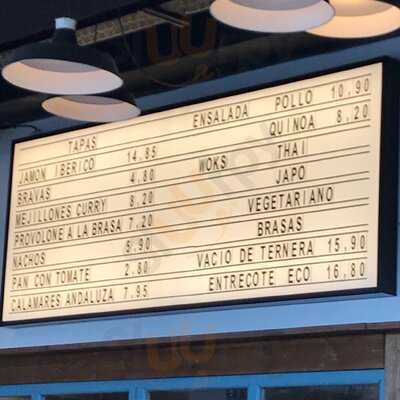 TAPAS
JAMON IBERICO 14.85
BRAVAS 4.80
MEJILLONES CURRY 8.20
PROVOLONE A LA BRASA 7.20
NACHOS 5.90
PAN CON TOMATE 2.80
CALAMARES ANDALUZA 7.95
ENSALADA POLLO 10.90
QUINOA 8.20
WOKS THAI
JAPO
VEGETARIANO
BRASAS
VACIO DE TERNERA 15.90
ENTRECOTE ECO 16.80